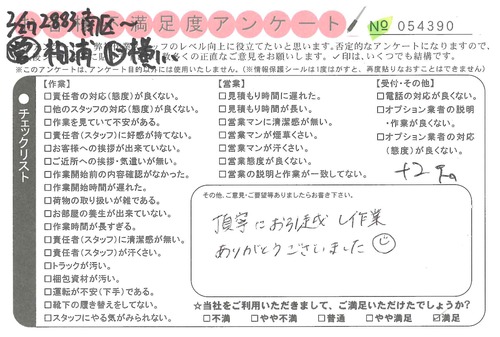 2/27 2883 南区～
満足度アンケート
№ 054390
のレベル向上に役立てたいと思います。否定的なアンケートになりますので、
くの正直なご意見をお願いします。✓印は、いくつでも結構です。
※このアンケートは、アンケート目的以外には使用いたしません。(※情報保護シールは1度はがすと、再度貼りなおすことはできません。)
チェックリスト
【作業】
□責任者の対応(態度)が良くない。
□他のスタッフの対応(態度)が良くない。
□作業を見ていて不安がある。
□責任者(スタッフ)に好感が持てない。
□お客様への挨拶が出来ていない。
□ご近所への挨拶・気遣いが無い。
□作業開始前の内容確認がなかった。
□作業開始時間が遅れた。
□荷物の取り扱いが雑である。
□お部屋の養生が出来ていない。
□作業時間が長すぎる。
□責任者(スタッフ)に清潔感が無い。
□責任者(スタッフ)が汗くさい。
□トラックが汚い。
□梱包資材が汚い。
□運転が不安(下手)である。
□靴下の履き替えをしてない。
□スタッフにやる気がみられない。
【営業】
□見積もり時間に遅れた。
□見積もり時間が長い。
□営業マンに清潔感が無い。
□営業マンが煙草くさい。
□営業マンが汗くさい。
□営業態度が良くない。
□営業の説明と作業が一致してない。
【受付・その他】
□電話の対応が良くない。
□オプション業者の説明
・作業が良くない。
□オプション業者の対応
(態度)が良くない。
その他、ご意見・ご要望等ありましたらお書き下さい。
頂寧にお引越し作業
ありがとうございました
☆当社をご利用いただきまして、ご満足いただけたでしょうか?
□不満 □やや不満 □普通 □やや満足 ☑満足